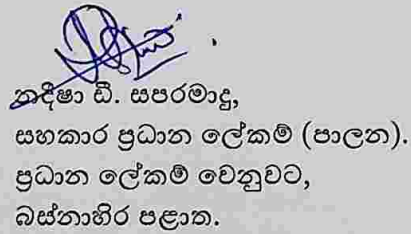 නදීෂා ඩී. සපරමාදු,
සහකාර ප්‍රධාන ලේකම් (පාලන).
ප්‍රධාන ලේකම් වෙනුවට,
බස්නාහිර පළාත.